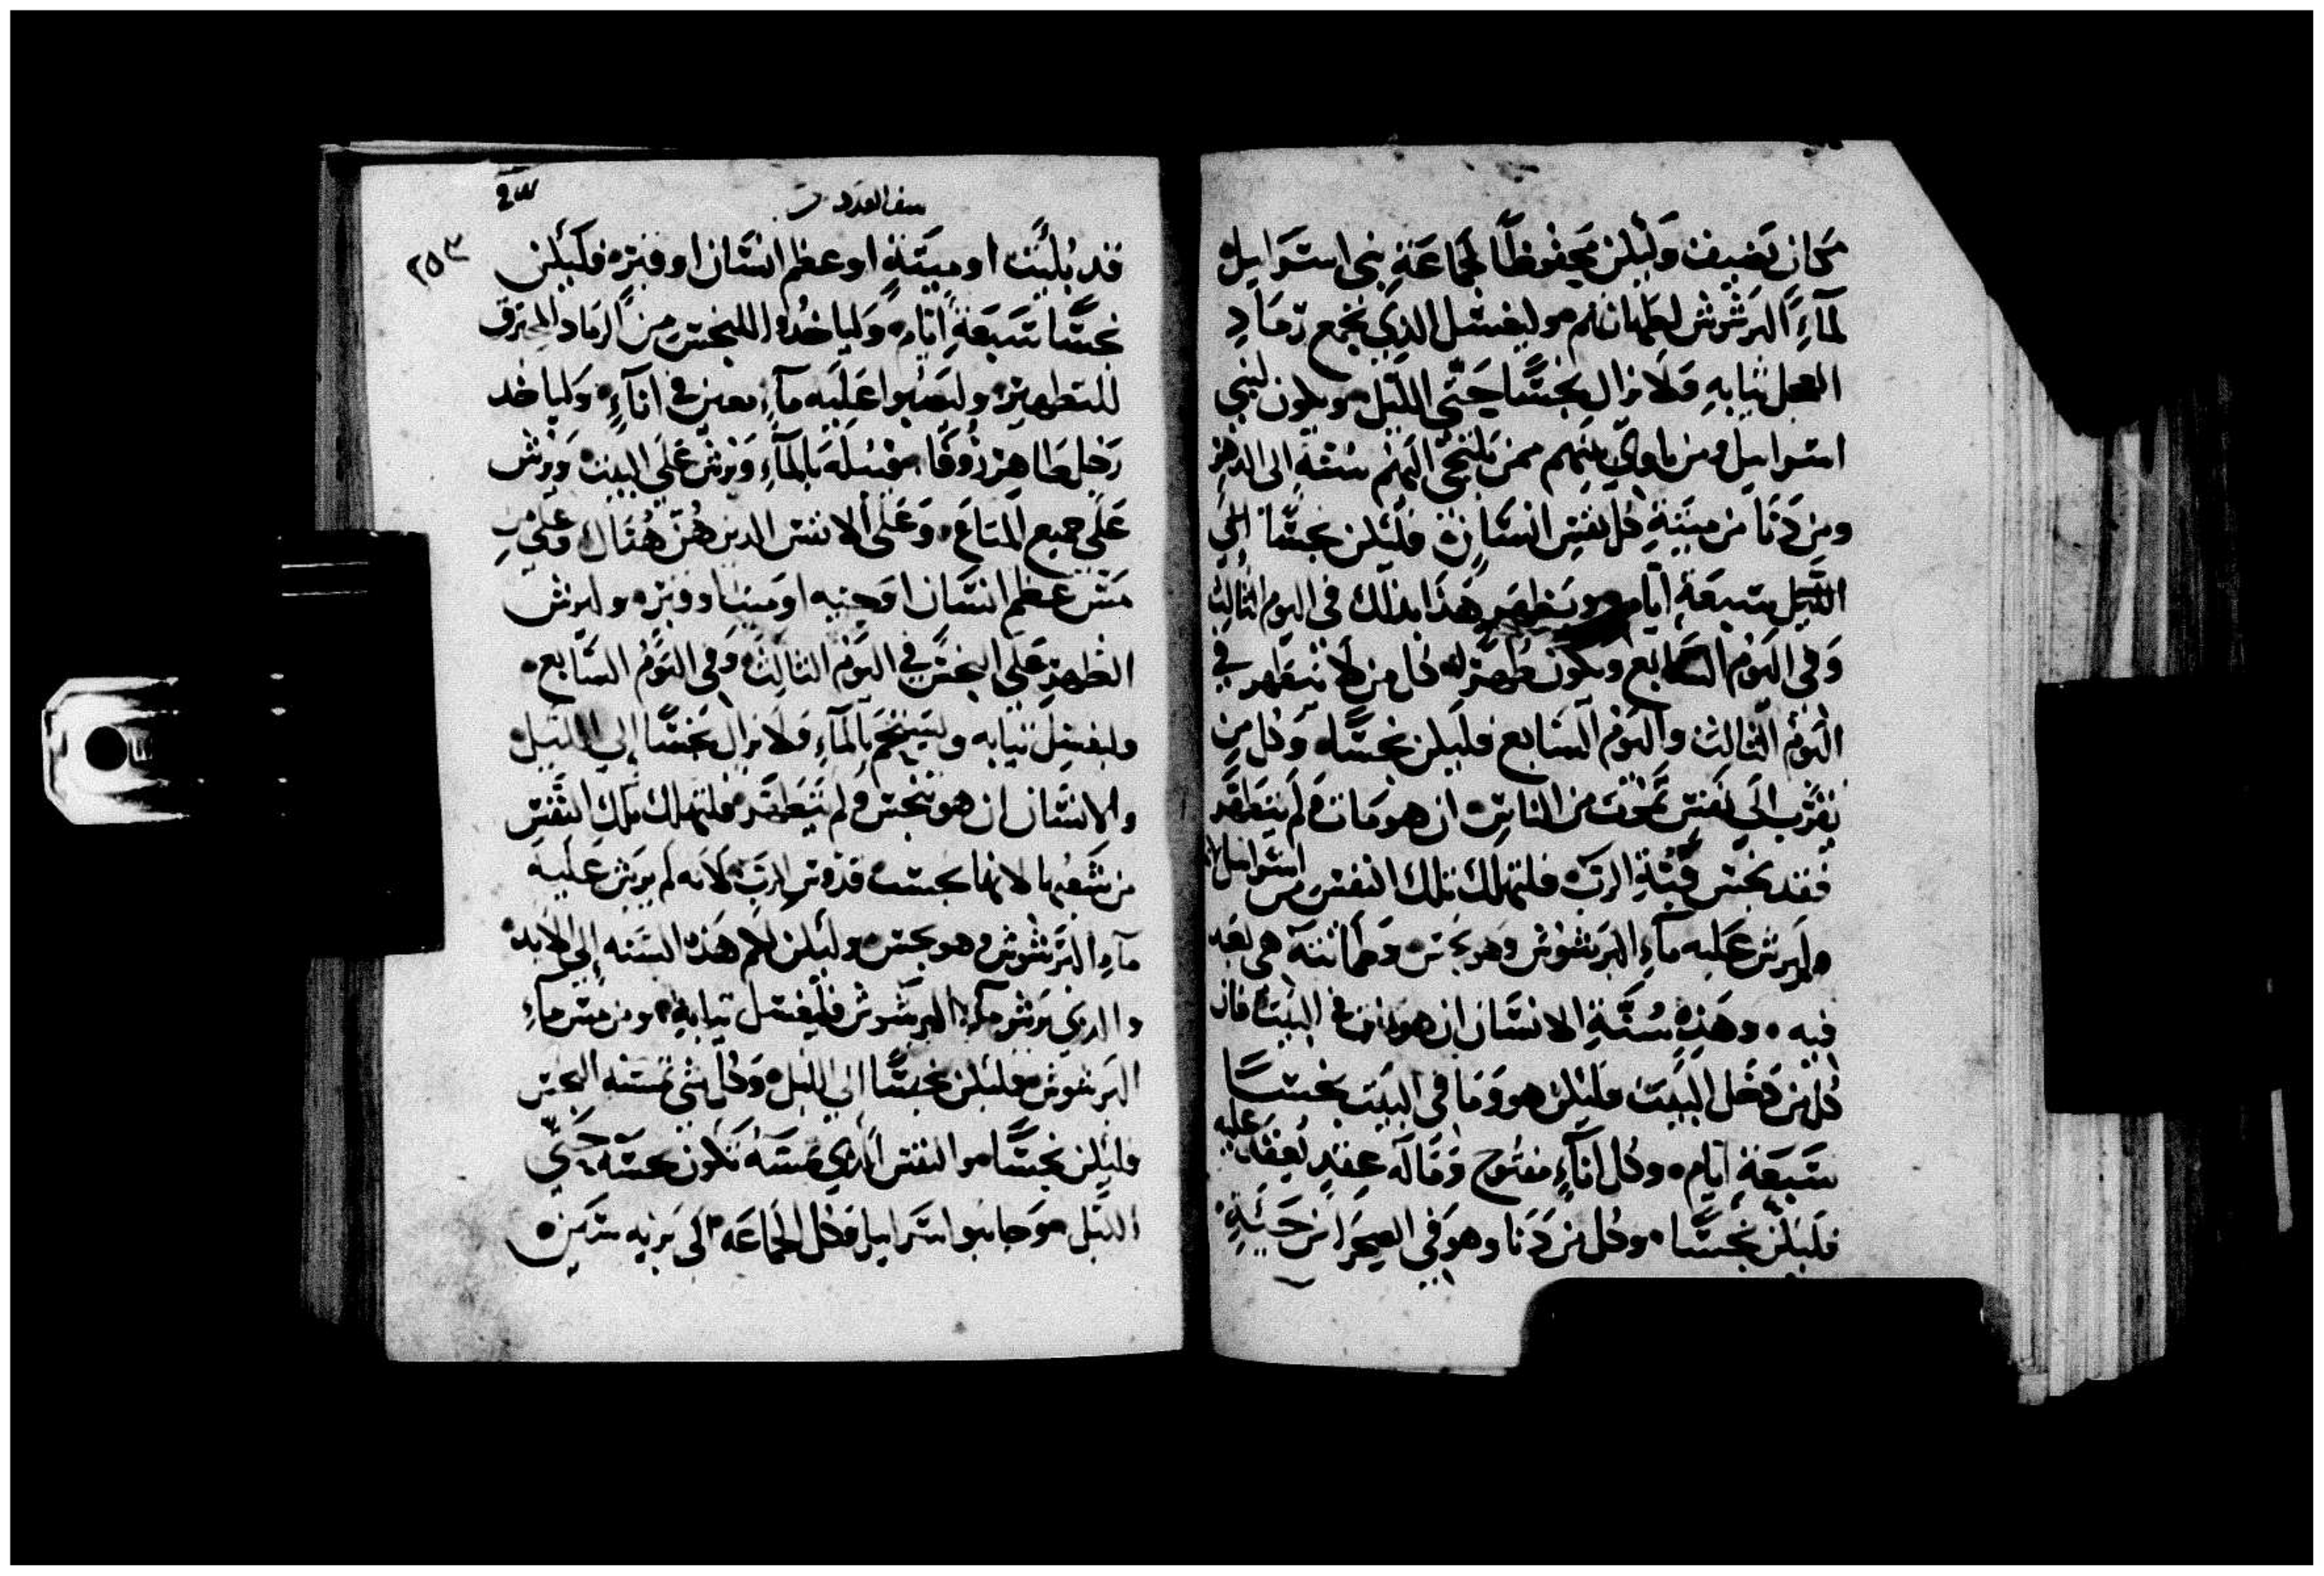 مكان نضيف وليكن محفوظًا لجماعة بني اسرايل
لمآءِ الرشوش لطهاتهم وليغسل الذي يجمع رماد
العجل ثيابهِ ولا يزال نجسًا حتى الليل ويكون لبني
اسرايل ومن ياوي اليهم ممن يلتجي اليهم سنة الى الدهر
ومن دنا من ميتةِ كل نفس انسان فليكن نجسًا الي
الليل سبعة ايام ويطهر هذا بذلك في اليوم الثالث
وفي اليوم السابع ويكون طهر له كل من لا يتطهر في
اليوم الثالث واليوم السابع فليكن نجسًا وكل من
يقترب الي نفس تموت من الناس ان هو مات ولم يتطهر
فقد نجس قبة الرب فلتهلك تلك النفس من اسرايل لانه
ولم يرش عليه مآءِ الرشوش وهو نجس وطماثته هي بعد
فيه وهذه سُنَّة الانسان ان هو مات في البيت فان
كل من دخل البيت فليكن هو وما في البيت نجسًا
سبعة ايام وكل انآءٍ مفتوح وماله عقد يعقد عليه
فليكن نجسًا وكل من دنا وهو في الصحرا من جيئةِ
سفر العدد
٢٥٣
قد بليت او ميتةٍ او عظم انسان او قبره فليكن
نجسًا سبعة ايام وليا خدوا للنجس من الرماد المحترق
للتطهير وليصبوا عليه مآءِ معين في انآءٍ وليا خد
رجل طاهر زوفا يغسله بالمآءِ ويرش علي البيت ويرش
علي جميع المتاع وعلي الانفس الدين هُنَّ هُناك وعلي من
مس عظم انسان او جنبه او ميتا او قبره وليرش
الطهر علي النجس في اليوم الثالث وفي اليوم السابع
وليغسل ثيابه وليستحم بالمآءِ ولا يزال نجسًا الي الليل
والانسان ان هو تنجس ولم يتطهر فلتهلك تلك النفس
من شعبها لانها نجست قدوس الرب لانه لم يرش عليه
مآءِ الرشوش وهو نجس وليكن لكم هذه السنه الي الابد
والدي يرش مآء الرشوش فليغسل ثيابهِ ومن مس مآءِ
الرشوش فليكن نجسًا الي الليل وكل شي مسه النجس
فليكن نجسًا والنفس الذي مسه تكون نجسه حتي
الليل وجا بنوا اسرايل وكل الجماعه الى بريه سين